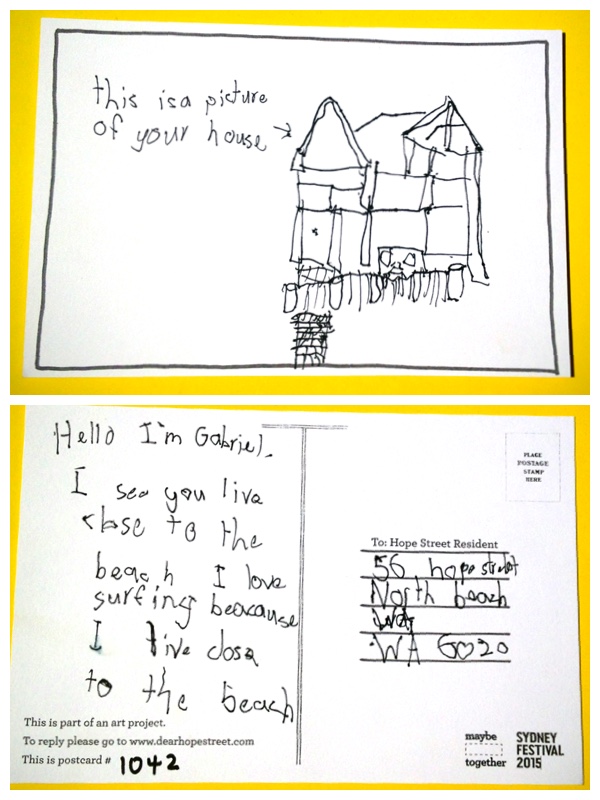 this is a picture
of your house
Hello I'm Gabriel.
I see you live
close to the
beach I love
surfing beacause
I live close
to the beach
This is part of an art project.
To reply please go to www.dearhopestreet.com
This is postcard # 1042
PLACE
POSTAGE
STAMP
HERE
To: Hope Street Resident
56 hope street
North beach
WA
WA 6020
maybe
together
SYDNEY
FESTIVAL
2015